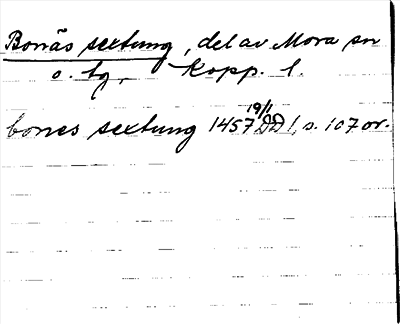 Bonäs sextung, del av Mora sn
o. tg, Kopp. l.
19/1
bones sextung 1457 DD 1, s. 107 or.